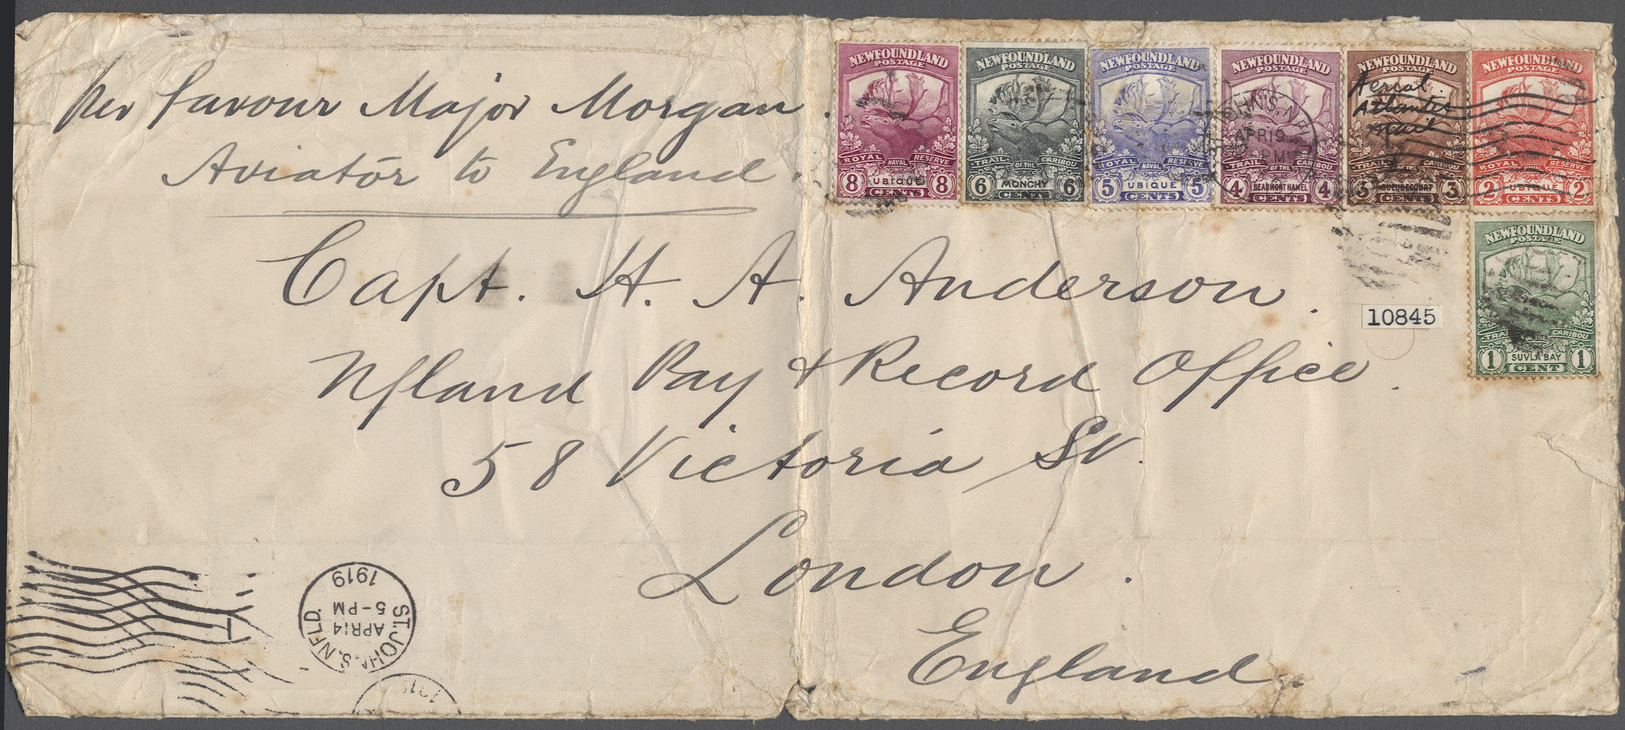 Per favour Major Morgan
Aviator to England.
Capt. H. A. Anderson.
Nfland Pay & Record Office.
58 Victoria St.
London.
England.
NEWFOUNDLAND
POSTAGE
ROYAL NAVAL RESERVE
8 UBIQUE 8
CENTS
NEWFOUNDLAND
POSTAGE
TRAIL OF THE CARIBOU
6 MONCHY 6
CENTS
NEWFOUNDLAND
POSTAGE
ROYAL NAVAL RESERVE
5 UBIQUE 5
CENTS
NEWFOUNDLAND
POSTAGE
TRAIL OF THE CARIBOU
4 BEAUMONT HAMEL 4
CENTS
NEWFOUNDLAND
POSTAGE
Aerial
Atlantic
mail
TRAIL OF THE CARIBOU
3 GUEUDECOURT 3
CENTS
NEWFOUNDLAND
POSTAGE
ROYAL NAVAL RESERVE
2 UBIQUE 2
CENTS
APR 19
PM
10845
NEWFOUNDLAND
POSTAGE
TRAIL CARIBOU
1 SUVLA BAY 1
CENT
ST. JOHN'S. NFLD.
APR 14
5-PM
1919